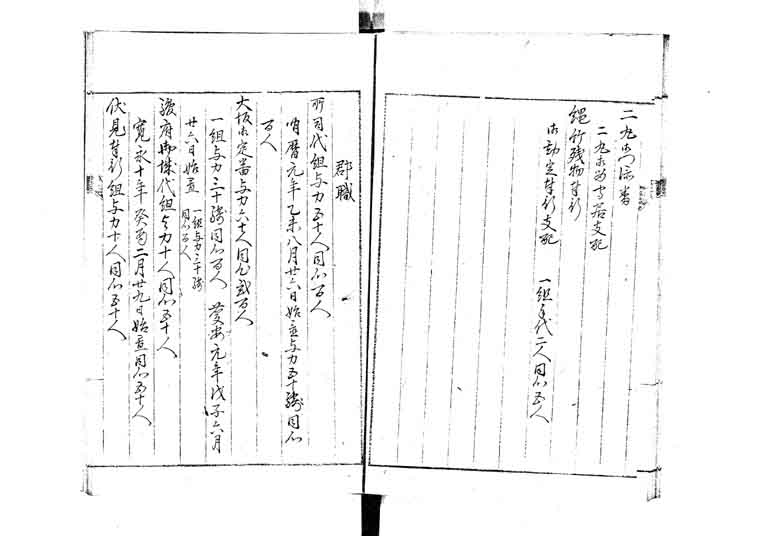 二丸御門添番
二丸御留守居支配
縄竹残物奉行
御勘定奉行支配
一組手代二人同心五人
郡職
所司代組与力五十人同心百人
明暦元年乙未八月廿六日始立与力五十騎同心
百人
大坂御定番与力六十人同心弐百人
一組与力三十騎同心百人 慶安元年戊子六月
廿六日始置 一組与力三十騎
同心百人
駿府御城代組与力十人同心五十人
寛永十年癸酉二月廿九日始置同心五十人
伏見奉行組与力十人同心五十人